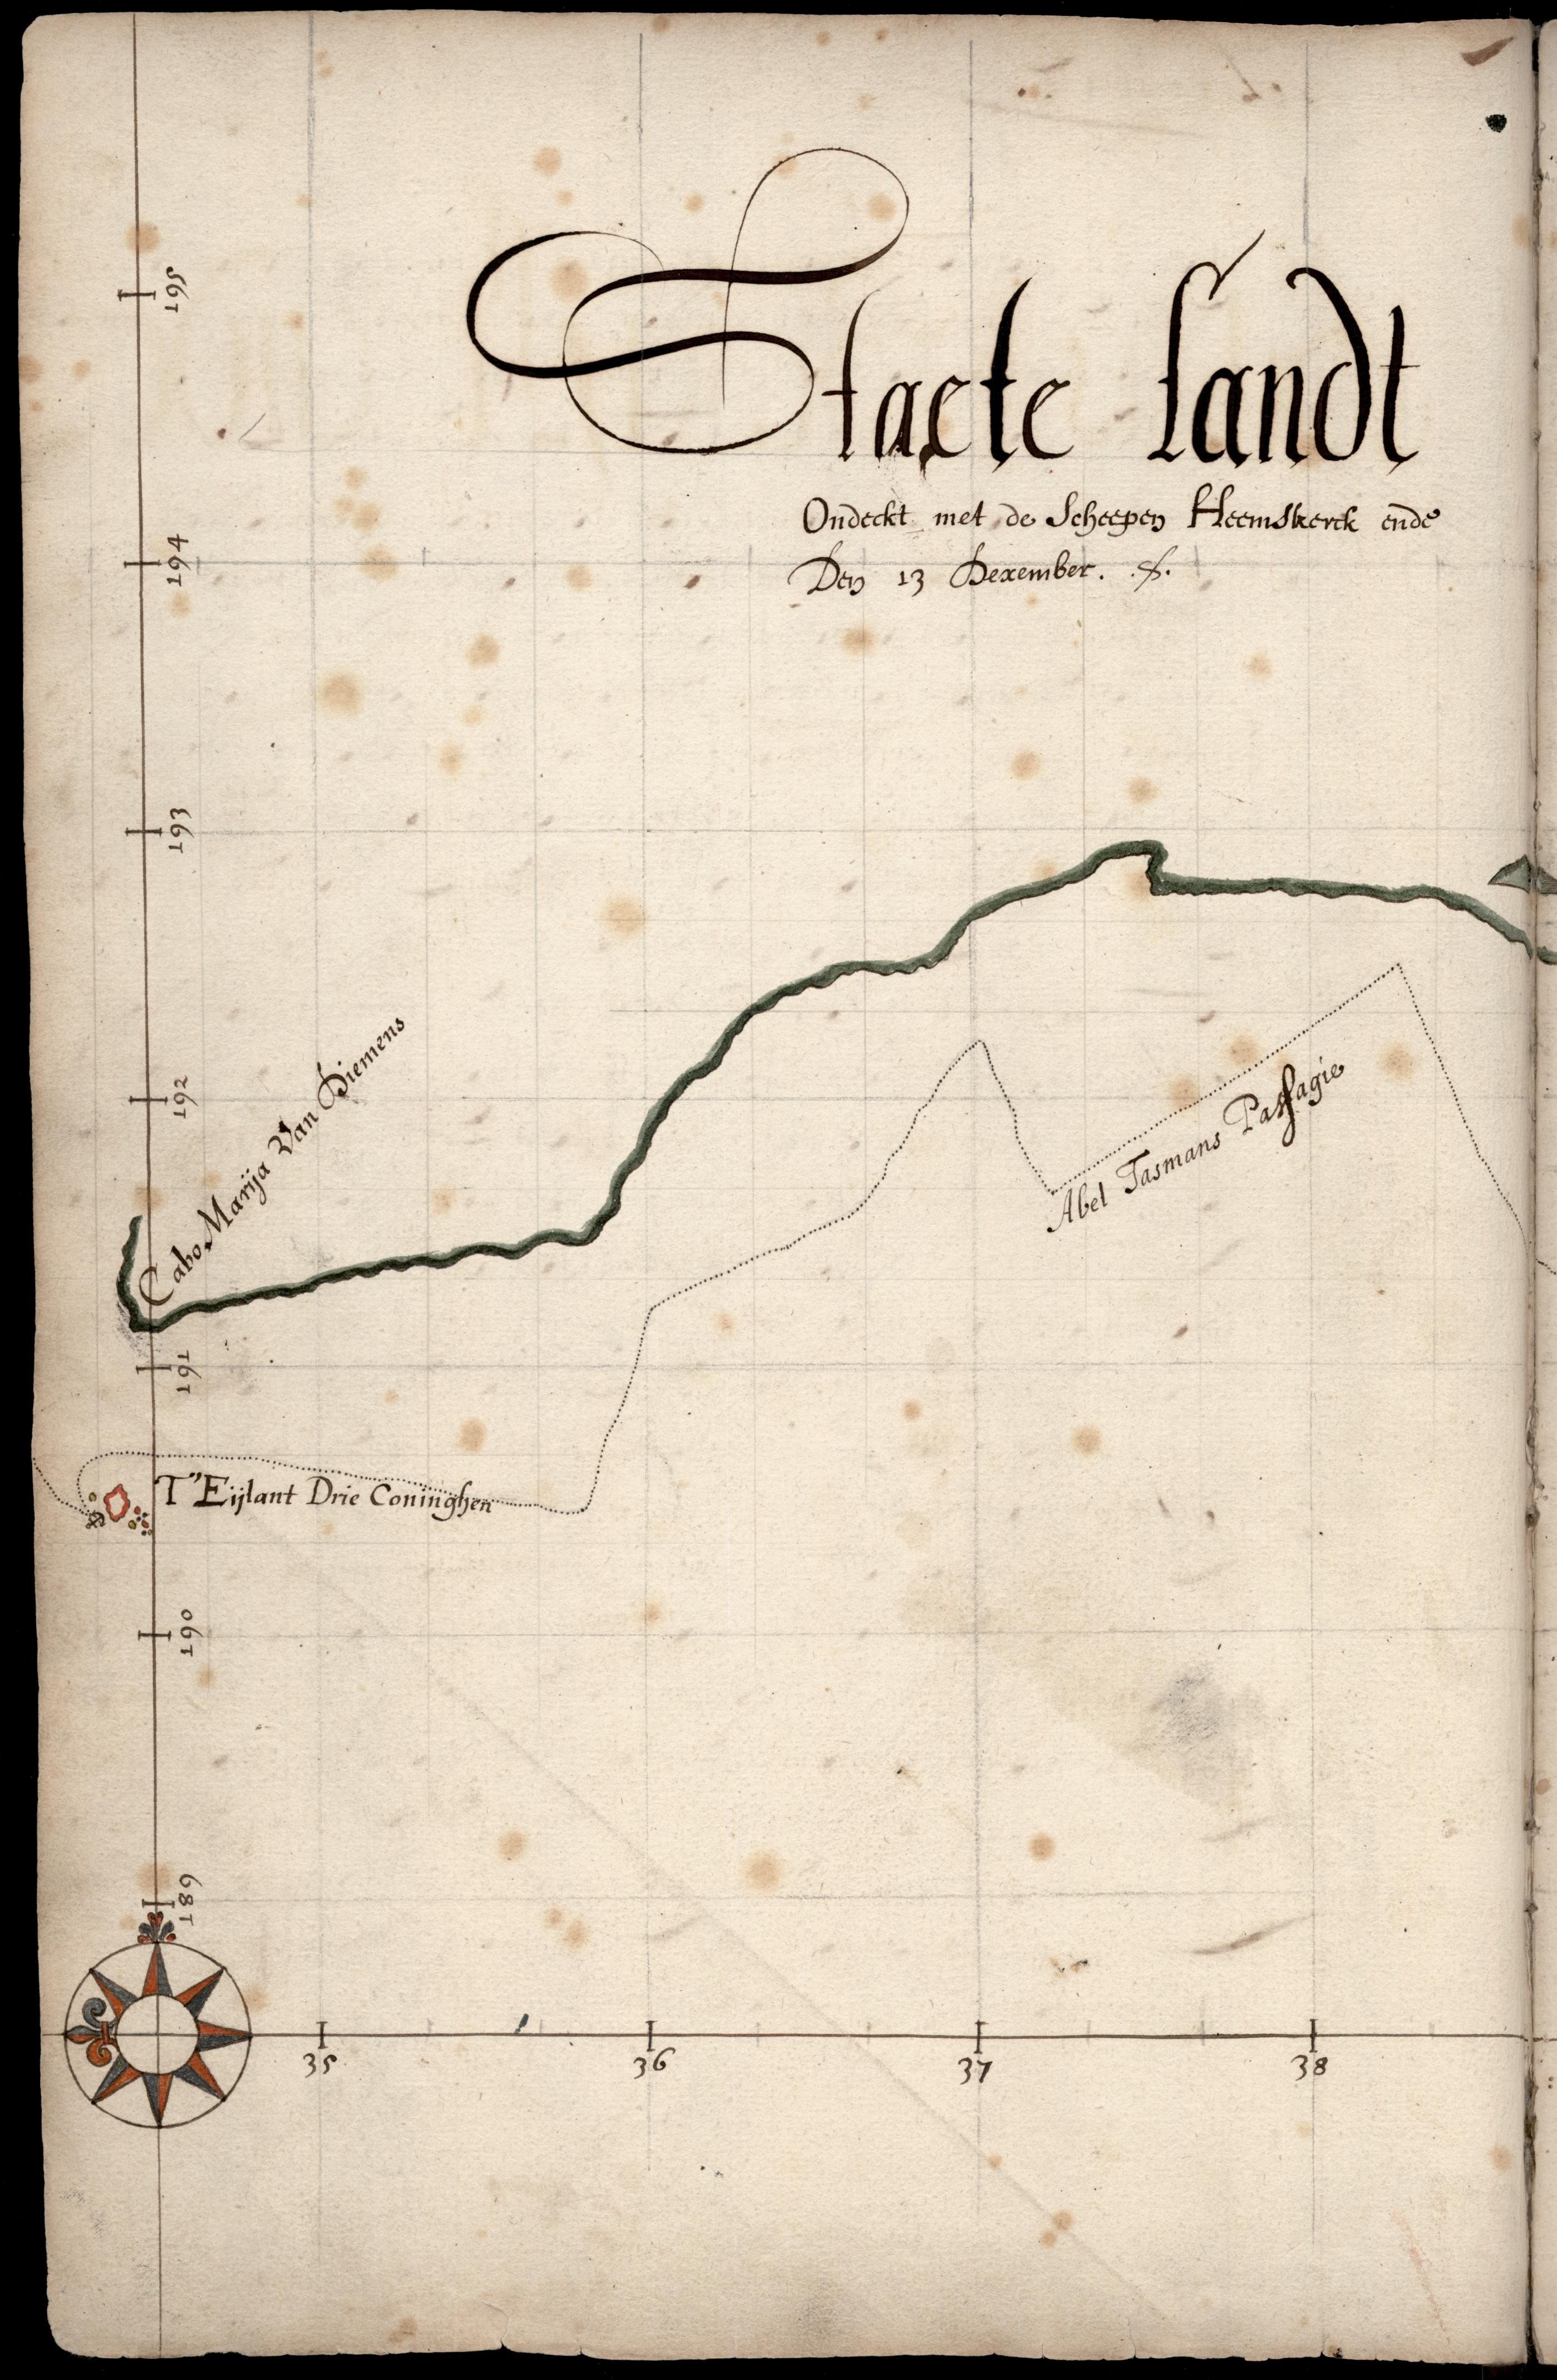 Staete Landt
Ondeckt met de Scheepen Heemskerck ende
Den 13 Dexember.
195
194
193
192
191
190
189
Cabo Marija Van Diemens
Abel Tasmans Passagie
T"Eijlant Drie Coninghen
35 36 37 38